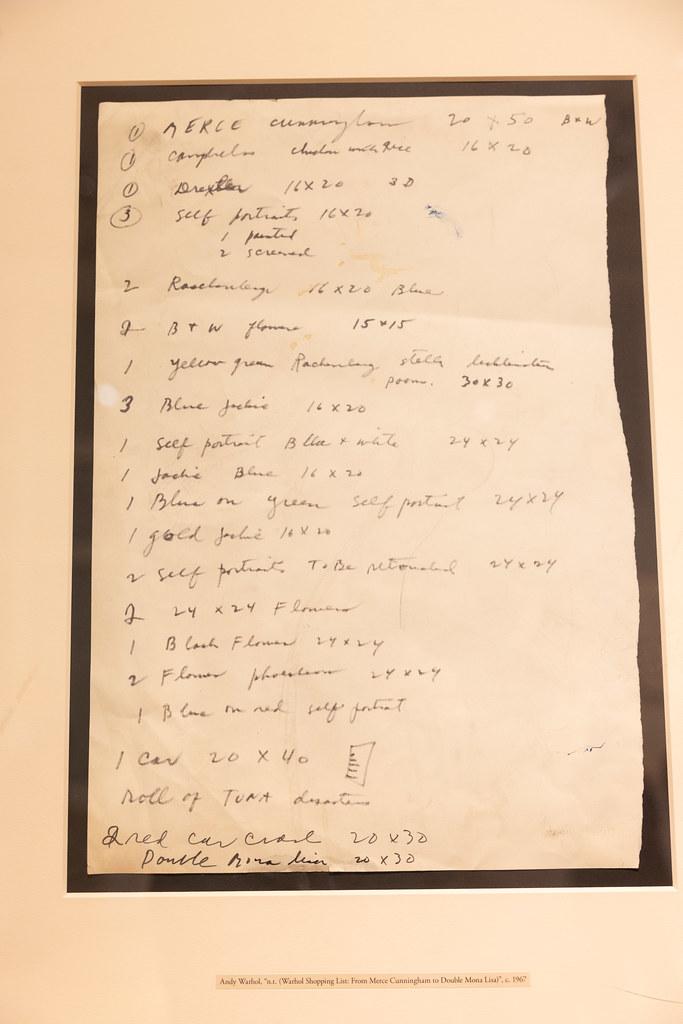 ① MERCE Cunningham 20 x 50 B+W
① Campbells chicken with Rice 16 x 20
① 16 x 20 3D
③ Self portraits 16x20
1 painted
2 screened
2 16 x 20 Blue
2 B + W flowers 15 x 15
1 yellow green Stella
30x30
3 Blue Jackie 16 x 20
1 Self portrait + white 24 x 24
1 Jackie Blue 16 x 20
1 Blue on green Self portrait 24 x 24
1 gold Jackie 16 x 20
2 Self portraits To Be retouched 24 x 24
2 24 x 24 Flowers
1 Black Flower 24 x 24
2 Flower 24 x 24
1 Blue on red self portrait
1 Car 20 X 40
Roll of TUNA disasters
2 red car crash 20 x 30
Double Mona Lisa 20 x 30
Andy Warhol, "n.t. (Warhol Shopping List: From Merce Cunningham to Double Mona Lisa)", c. 1967